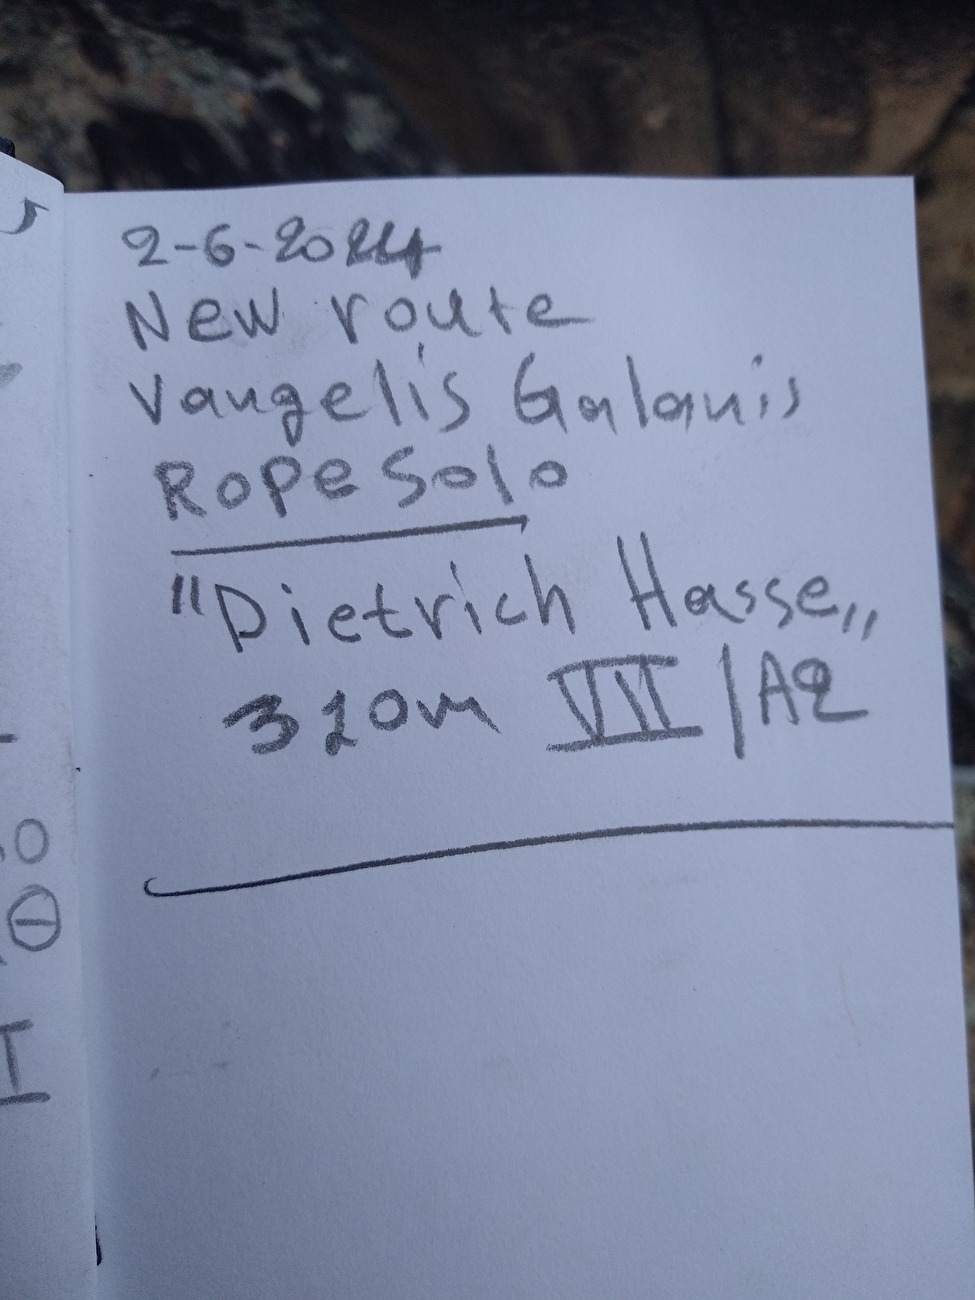 2-6-2024
New route
Vangelis Galanis
Rope Solo
"Dietrich Hasse„
320m VII/A2
O
I